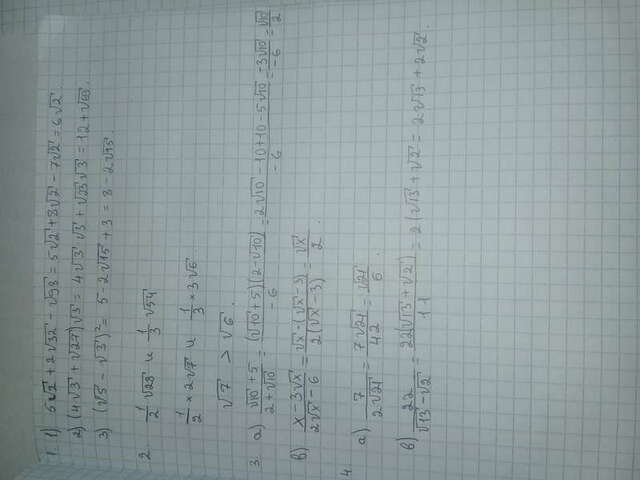 1. 1) 5√2 + 2√32 - √98 = 5√2 + 8√2 - 7√2 = 6√2.
2) (4√3 + √27)√3 = 4√3 · √3 + √23 √3 = 12 + √69.
3) (√5 - √3)² = 5 - 2√15 + 3 = 8 - 2√15.
2. 1/2 √28 и 1/3 √54
1/2 × 2√7 и 1/3 × 3√6
√7 > √6.
3. а) (√10 + 5)/(2 + √10) = (√10 + 5)(2 - √10)/-6 = (2√10 - 10 + 10 - 5√10)/-6 = -3√10/-6 = √10/2
в) (x - 3√x)/(2√x - 6) = √x · (√x - 3)/2(√x - 3) = √x/2.
4.
а) 7/2√21 = 7√21/42 = √21/6.
в) 22/(√13 - √2) = 22(√13 + √2)/11 = 2(√13 + √2 = 2√13 + 2√2.